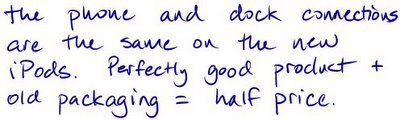 the phone and dock connections
are the same on the new
iPods. Perfectly good product +
old packaging = half price.